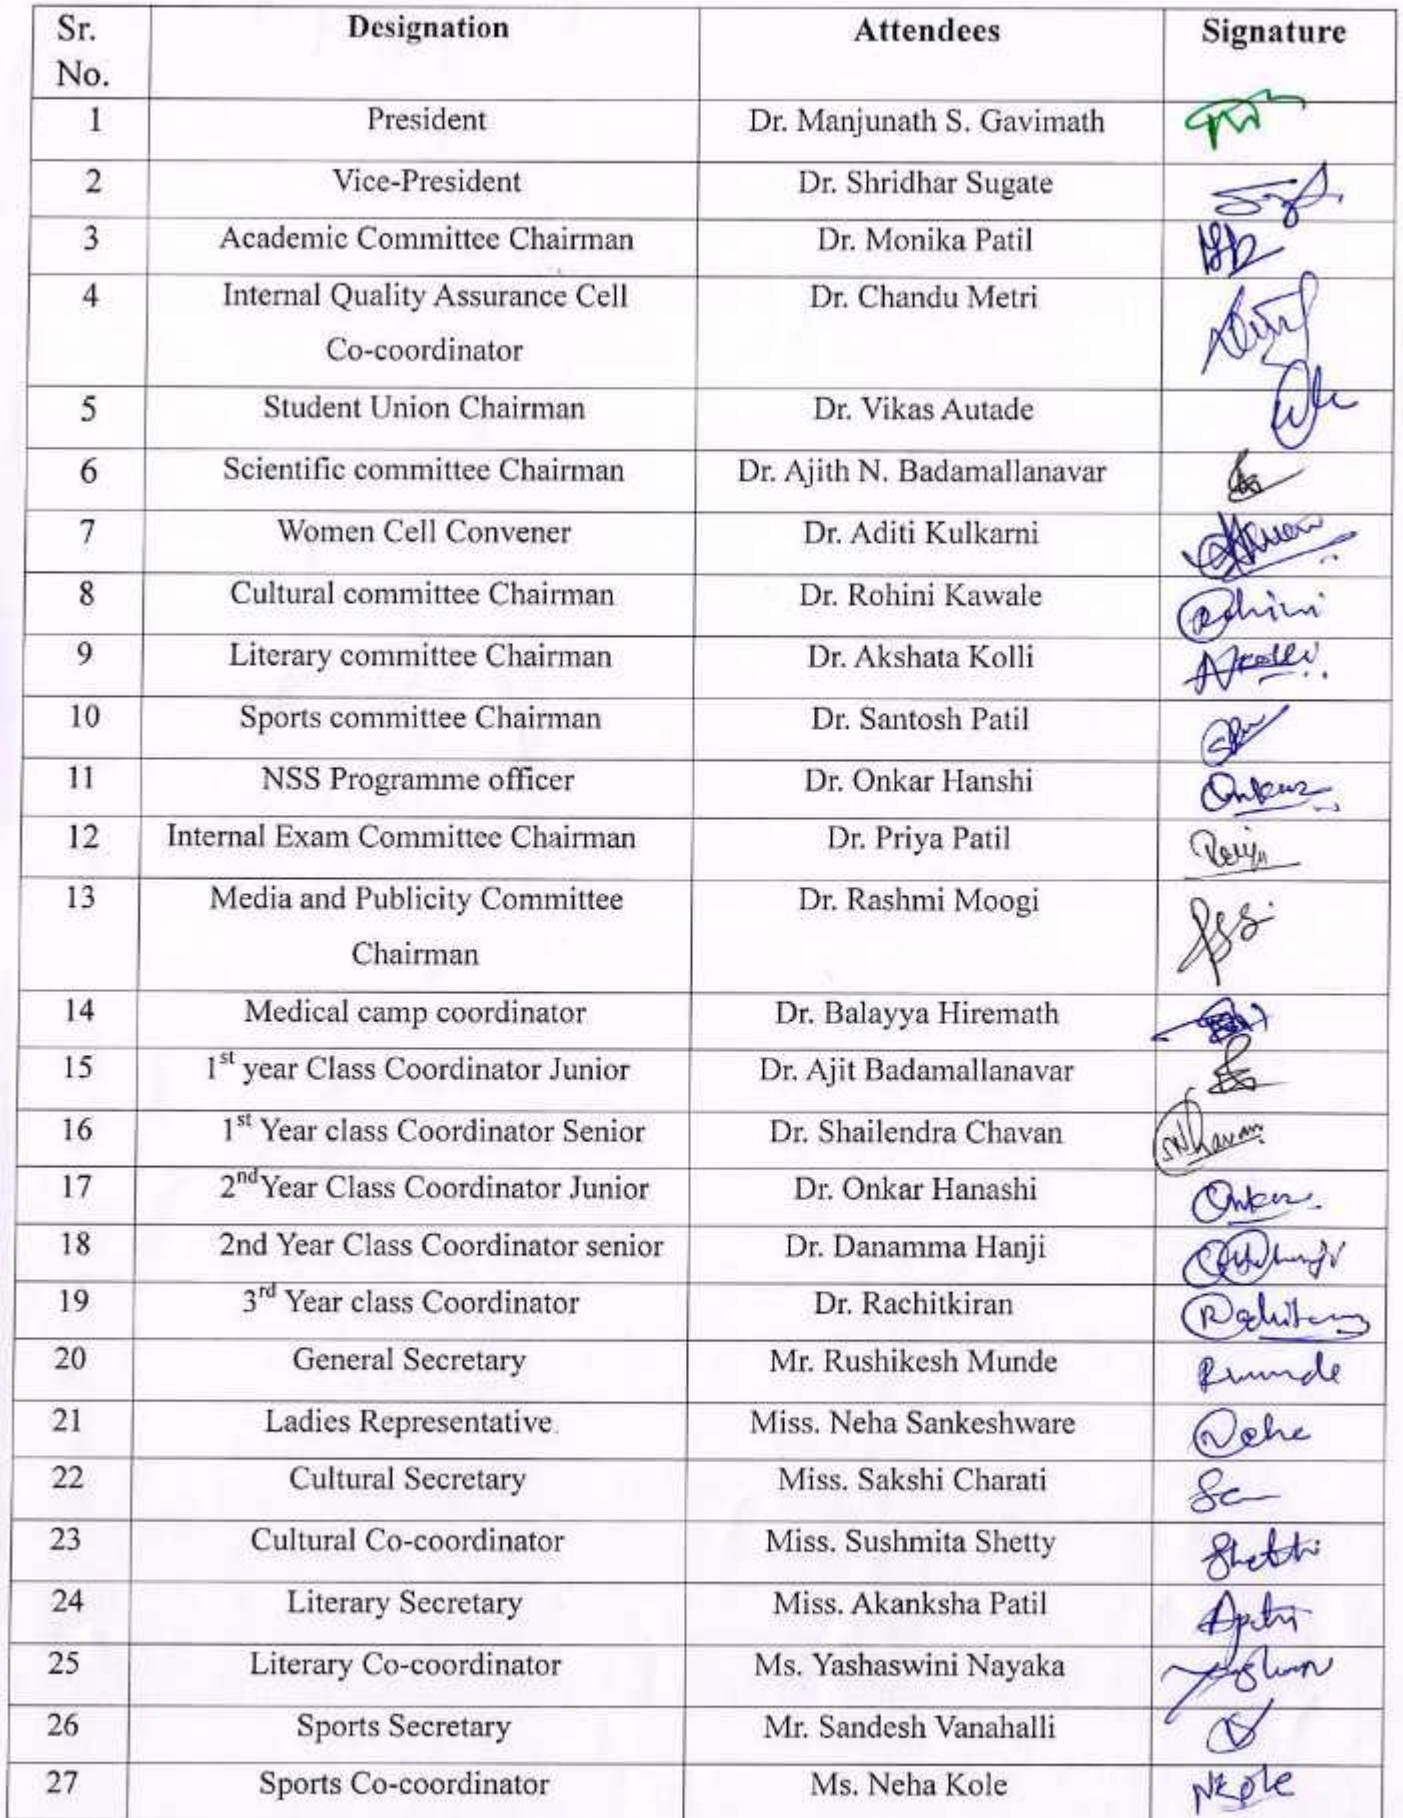 Sr. No. Designation Attendees Signature
1 President Dr. Manjunath S. Gavimath
2 Vice-President Dr. Shridhar Sugate
3 Academic Committee Chairman Dr. Monika Patil
4 Internal Quality Assurance Cell Dr. Chandu Metri
Co-coordinator
5 Student Union Chairman Dr. Vikas Autade
6 Scientific committee Chairman Dr. Ajith N. Badamallanavar
7 Women Cell Convener Dr. Aditi Kulkarni
8 Cultural committee Chairman Dr. Rohini Kawale Rohini
9 Literary committee Chairman Dr. Akshata Kolli AKolli
10 Sports committee Chairman Dr. Santosh Patil
11 NSS Programme officer Dr. Onkar Hanshi Onkar
12 Internal Exam Committee Chairman Dr. Priya Patil Priya
13 Media and Publicity Committee Dr. Rashmi Moogi
Chairman
14 Medical camp coordinator Dr. Balayya Hiremath
15 1st year Class Coordinator Junior Dr. Ajit Badamallanavar
16 1st Year class Coordinator Senior Dr. Shailendra Chavan
17 2nd Year Class Coordinator Junior Dr. Onkar Hanashi Onkar
18 2nd Year Class Coordinator senior Dr. Danamma Hanji
19 3rd Year class Coordinator Dr. Rachitkiran
20 General Secretary Mr. Rushikesh Munde Rmunde
21 Ladies Representative. Miss. Neha Sankeshware Neha
22 Cultural Secretary Miss. Sakshi Charati
23 Cultural Co-coordinator Miss. Sushmita Shetty Shetti
24 Literary Secretary Miss. Akanksha Patil
25 Literary Co-coordinator Ms. Yashaswini Nayaka
26 Sports Secretary Mr. Sandesh Vanahalli
27 Sports Co-coordinator Ms. Neha Kole NKole